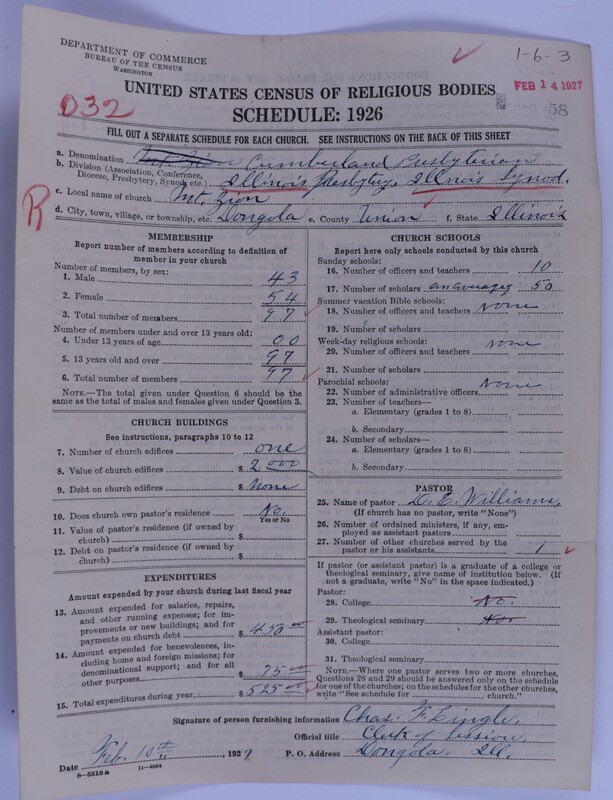 DEPARTMENT OF COMMERCE
BUREAU OF THE CENSUS
WASHINGTON
1-6-3
UNITED STATES CENSUS OF RELIGIOUS BODIES
FEB 14 1927
032
SCHEDULE: 1926
58
FILL OUT A SEPARATE SCHEDULE FOR EACH CHURCH. SEE INSTRUCTIONS ON THE BACK OF THIS SHEET
a. Denomination Mt. Zion Cumberland Presbyterian
b. Division (Association, Conference, Diocese, Presbytery, Synod, etc.) Illinois Presbytery, Illinois Synod.
R
c. Local name of church Mt. Zion
d. City, town, village, or township, etc. Dongola e. County Union f. State Illinois
MEMBERSHIP
Report number of members according to definition of member in your church
Number of members, by sex:
1. Male 43
2. Female 54
3. Total number of members 97
Number of members under and over 13 years old:
4. Under 13 years of age 00
5. 13 years old and over 97
6. Total number of members 97
NOTE.—The total given under Question 6 should be
same as the total of males and females given under Question 3.
CHURCH BUILDINGS
See instructions, paragraphs 10 to 12
7. Number of church edifices one
8. Value of church edifices $ 2000
9. Debt on church edifices $ None
10. Does church own pastor's residence? No.
Yes or No
11. Value of pastor's residence (if owned by
church) $
12. Debt on pastor's residence (if owned by
church) $
EXPENDITURES
Amount expended by your church during last fiscal year
13. Amount expended for salaries, repairs,
and other running expenses; for im-
provements or new buildings; and for
payments on church debt $ 450 00
14. Amount expended for benevolences, in-
cluding home and foreign missions; for
denominational support; and for all
other purposes 75 00
15. Total expenditures during year $ 525 00
CHURCH SCHOOLS
Report here only schools conducted by this church
Sunday schools:
16. Number of officers and teachers 10
17. Number of scholars an average 50
Summer vacation Bible schools:
18. Number of officers and teachers None
19. Number of scholars
Week-day religious schools:
20. Number of officers and teachers None
21. Number of scholars
Parochial schools:
22. Number of administrative officers None
23. Number of teachers—
a. Elementary (grades 1 to 8)
b. Secondary
24. Number of scholars—
a. Elementary (grades 1 to 8)
b. Secondary
PASTOR
25. Name of pastor D. E. Williams,
(If church has no pastor, write "None")
26. Number of ordained ministers, if any, em-
ployed as assistant pastors
27. Number of other churches served by the
pastor or his assistants 1
If pastor (or assistant pastor) is a graduate of a college or
theological seminary, give name of institution below. (If
not a graduate, write "No" in the space indicated.)
Pastor:
28. College No.
29. Theological seminary No.
Assistant pastor:
30. College
31. Theological seminary
NOTE.—Where one pastor serves two or more churches,
Questions 28 and 29 should be answered only on the schedule
for one of the churches; on the schedules for the other churches,
write "See schedule for church."
Signature of person furnishing information Chas. F. Lingle,
Official title Clerk of Session,
Date Feb. 10th, 1927 P. O. Address Dongola, Ill.
8—5518a 11—9024